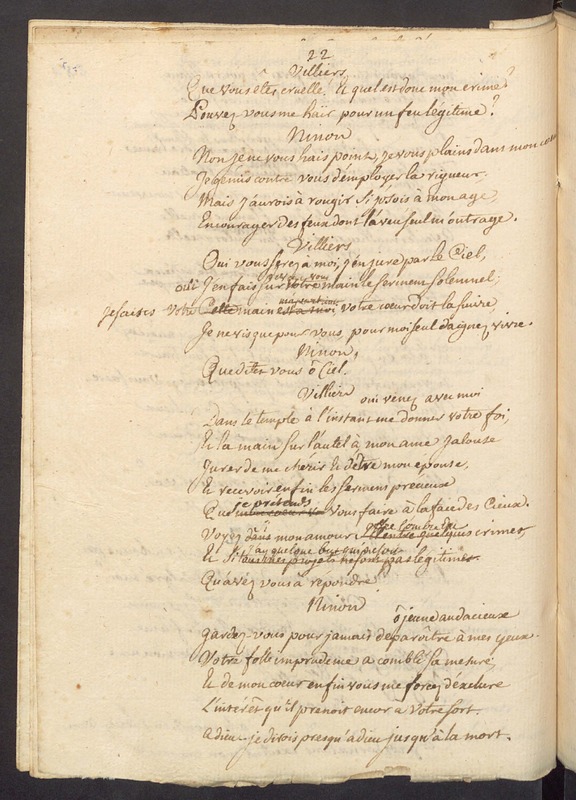 22
Villiers
Que vous êtes cruelle, Et quel est donc mon crime?
Pouvez vous me haïr pour un feu légitime?
Ninon
Non je ne vous hais point, je vous plains dans mon coeur
Je gémis contre vous d'employer la rigueur
Mais j'aurois à rougir si j'osois à mon age,
Encourager des feux dont l'aveu seul m'outrage.
Villiers
Oui vous serez à moi, j'en jure par le Ciel,
oui J'en fais sur votre main le serment solemnel;
Je saisis votre Cette main est à moi, votre coeur doit la suivre
Je ne vis que pour vous, pour moi seul daignez vivre.
Ninon,
Que dites vous ô Ciel.
Villiers
oui venez avec moi
Dans le temple à l'instant me donner votre foi,
Et la main sur l'autel à mon ame jalouse
Jurer de me chérir Et d'être mon epouse,
Et recevoir enfin les sermens précieux
je prétends
Que vous faire à la face des Cieux.
Voyez dans mon amour quelques crimes,
Et Si tous mes projets ne sont pas légitimes.
Qu'avez vous à répondre
Ninon
ô jeune audacieux
gardez-vous pour jamais de paroître à mes yeux.
Votre folle imprudence a comblé sa mesure,
Et de mon coeur enfin vous me forcez d'exclure
L'interêt qu'il prenoit encor à votre sort.
adieu. je dirois presqu'adieu jusqu'à la mort.